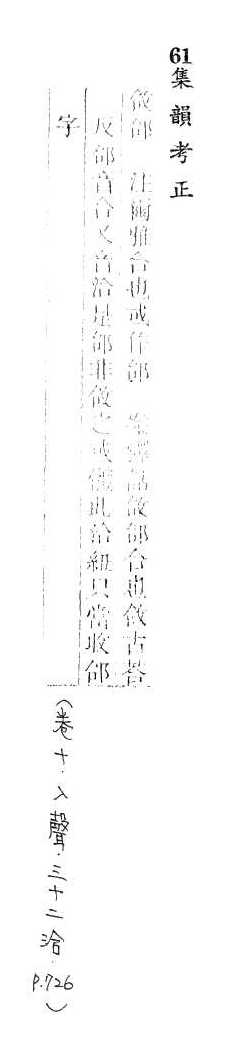 61集韻考正
敆郃 注爾雅合也或作郃 案釋詁敆郃合也敆古荅
反郃音合又音洽是郃非敆之或體此洽紐只當收郃
字
(卷十.入聲.三十二洽.P.726)